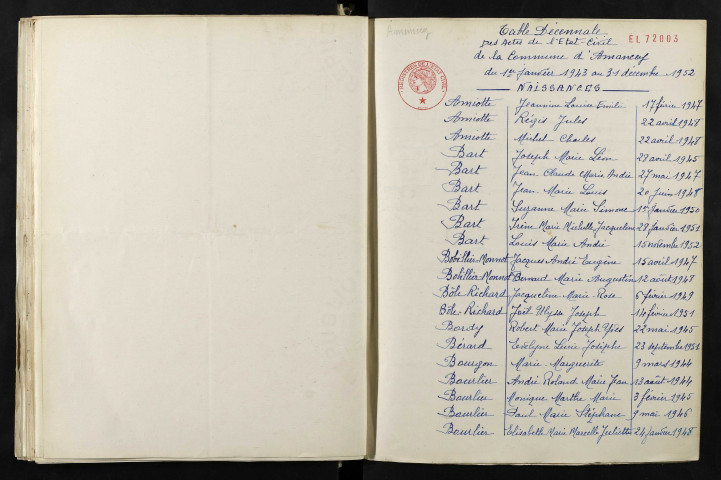 Table Décennale
Des Actes de l'Etat-Civil
EL 72003
de la Commune d'Amancey
du 1er janvier 1943 au 31 décembre 1952
NAISSANCES
Amiotte Jeannine Louise Emilie 17 févr 1947
Amiotte Régis Jules 22 avril 1948
Amiotte Michel Charles 22 avril 1948
Bart Joseph Marie Léon 29 avril 1945
Bart Jean Claude Marie André 27 mai 1947
Bart Jean Marie Louis 20 juin 1948
Bart Suzanne Marie Simone 1er janvier 1950
Bart Irène Marie Michelle Jacqueline 28 janvier 1951
Bart Louis Marie André 15 novembre 1952
Bobillier Monnot Jacques André Eugène 15 avril 1947
Bobillier Monnot Bernard Marie Augustin 12 août 1948
Bôle-Richard Jacqueline Marie Rose 6 février 1949
Bôle-Richard Joël Ulysse Joseph 14 février 1951
Bordy Robert Marie Joseph Yves 22 mai 1945
Bérard Evelyne Lucie Josèphe 23 septembre 1951
Bourgon Marie Marguerite 9 mars 1944
Bourlier André Roland Marie Jean 13 août 1944
Bourlier Monique Marthe Marie 3 février 1945
Bourlier Paul Marie Stéphane 9 mai 1946
Bourlier Elisabeth Marie Marcelle Juliette 24 janvier 1948